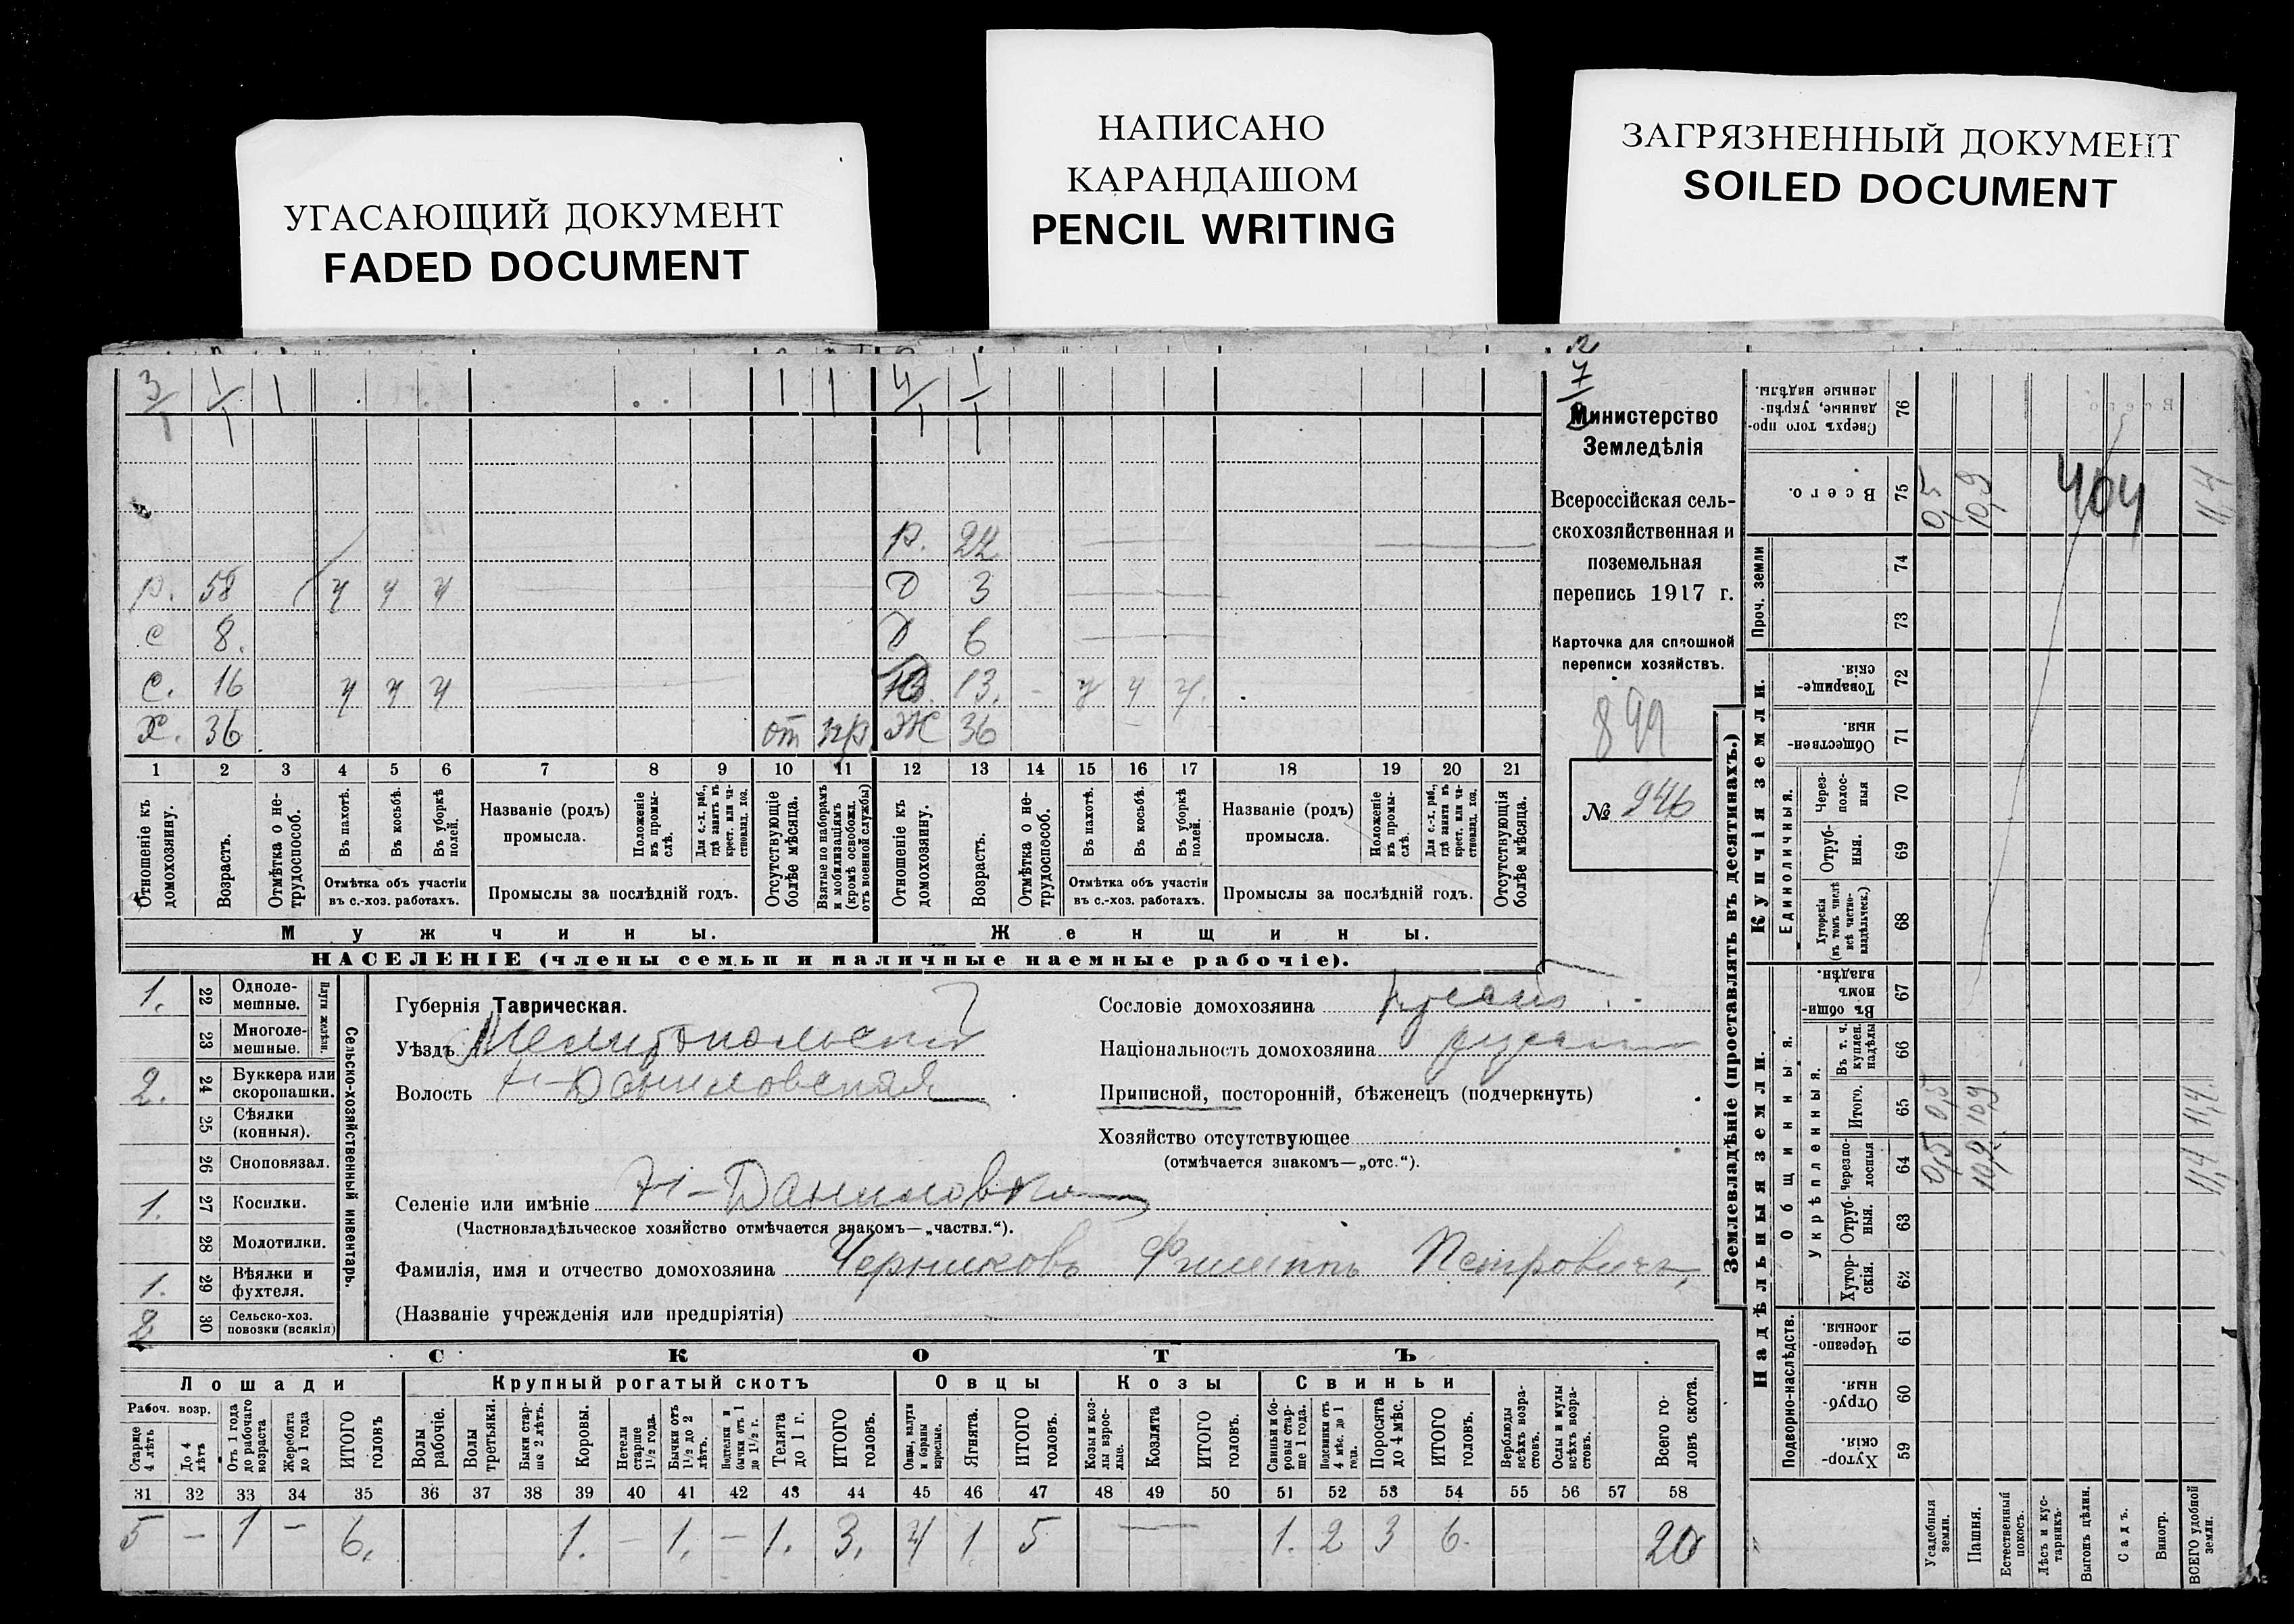 УГАСАЮЩИЙ ДОКУМЕНТ
FADED DOCUMENT
НАПИСАНО
КАРАНДАШОМ
PENCIL WRITING
ЗАГРЯЗНЕННЫЙ ДОКУМЕНТ
SOILED DOCUMENT
3/1 1/1 1 1 1 4/1 1/1
р. 22
р. 58 ч ч ч D 3
с 8. D 6
с. 16 ч ч ч 13. ч ч ч.
Х. 36 от нр Ж 36
1 2 3 4 5 6 7 8 9 10 11 12 13 14 15 16 17 18 19 20 21
Отношеніе къ домохозяину.
Возрастъ.
Отмѣтка о нетрудоспособ.
Въ пахотѣ.
Въ косьбѣ.
Въ уборкѣ полей.
Отмѣтка объ участіи
въ с.-хоз. работахъ.
Названіе (родъ)
промысла.
Положеніе въ промыслѣ.
Для с.-х. раб., гдѣ занятъ въ крест. или частновлад. хоз.
Промыслы за послѣдній годъ.
Отсутствующіе болѣе мѣсяца.
Взятые по наборамъ и мобилизаціямъ (кромѣ освобожд. отъ военной службы)
Отношеніе къ домохозяину.
Возрастъ.
Отмѣтка о нетрудоспособ.
Въ пахотѣ.
Въ косьбѣ.
Въ уборкѣ полей.
Отмѣтка объ участіи
въ с.-хоз. работахъ.
Названіе (родъ)
промысла.
Положеніе въ промыслѣ.
Для с.-х. раб., гдѣ занята въ крест. или частновлад. хоз.
Промыслы за послѣдній годъ.
Отсутствующія болѣе мѣсяца.
Мужчины.
Женщины.
НАСЕЛЕНІЕ (члены семьи и наличные наемные рабочіе).
Министерство
Земледѣлія
Всероссійская сель-
скохозяйственная и
поземельная
перепись 1917 г.
Карточка для сплошной
переписи хозяйствъ.
899
№ 946
1. 22 Однолемешные.
23 Многолемешные.
Плуги желѣзн.
2. 24 Буккера или скоропашки.
25 Сѣялки (конныя).
26 Сноповязал.
1. 27 Косилки.
28 Молотилки.
1. 29 Вѣялки и фухтеля.
2 30 Сельско-хоз. повозки (всякія)
Сельско-хозяйственный инвентарь.
Губернія Таврическая.
Уѣздъ Мелитопольскій
Волость Н-Даниловская
Сословіе домохозяина
Національность домохозяина
Приписной, посторонній, бѣженецъ (подчеркнуть)
Хозяйство отсутствующее
(отмѣчается знакомъ—„отс.“).
Селеніе или имѣніе Н-Даниловка
(Частновладѣльческое хозяйство отмѣчается знакомъ—„частвл.“).
Фамилія, имя и отчество домохозяина Черниковъ Филиппъ Петровичъ
(Названіе учрежденія или предпріятія)
СКОТЪ
Лошади Крупный рогатый скотъ Овцы Козы Свиньи
Рабоч. возр.
Старше 4 лѣтъ
До 4 лѣтъ
Отъ 1 года до рабочаго возраста
Жеребята до 1 года
ИТОГО головъ
Волы рабочіе.
Волы третьяки.
Быки старше 2 лѣтъ.
Коровы.
Нетели старше 1½ года.
Бычки отъ 1½ до 2 лѣтъ.
Подтелки и бычки отъ 1 до 1½ г.
Телята до 1 г.
ИТОГО головъ.
Овцы, валухи и бараны взрослые.
Ягнята.
ИТОГО головъ.
Козы и козлы взрослые.
Козлята
ИТОГО головъ.
Свиньи и боровы старше 1 года.
Подсвинки отъ 4 мѣс. до 1 года.
Поросята до 4 мѣс.
ИТОГО головъ.
Верблюды всѣхъ возрастовъ.
Ослы и мулы всѣхъ возрастовъ.
Всего головъ скота.
31 32 33 34 35 36 37 38 39 40 41 42 43 44 45 46 47 48 49 50 51 52 53 54 55 56 57 58
5 — 1 — 6. 1. — 1. — 1. 3. 4 1 5 — 1. 2 3 6. 20
Землевладѣніе (проставлять въ десятинахъ.)
Надѣльныя земли.
Купчія земли.
Проч. земли
Подворно-наслѣдств.
Общинныя.
Укрѣпленныя.
Единоличныя.
Сверхъ того проданные, укрѣпленные надѣлы. 76
Всего. 75 0,5 10,9 11,4
404
74
73
Товарищескія. 72
Общественныя. 71
Черезполосныя 70
Отрубныя. 69
Хуторскія (въ томъ числѣ всѣ частновладѣльческ.) 68
Въ общинномъ владѣн. 67
Въ т. ч. куплен. надѣлы 66
Итого. 65 0,5 10,9 11,4
Черезполосныя 64 0,5 10,9 11,4
Отрубныя. 63
Хуторскія. 62
Черезполосныя. 61
Отрубныя. 60
Хуторскія. 59
Усадебныя земли.
Пашня.
Естественный покосъ.
Лѣсъ и кустарникъ.
Выгонъ цѣлин.
Садъ.
Виногр.
ВСЕГО удобной земли.